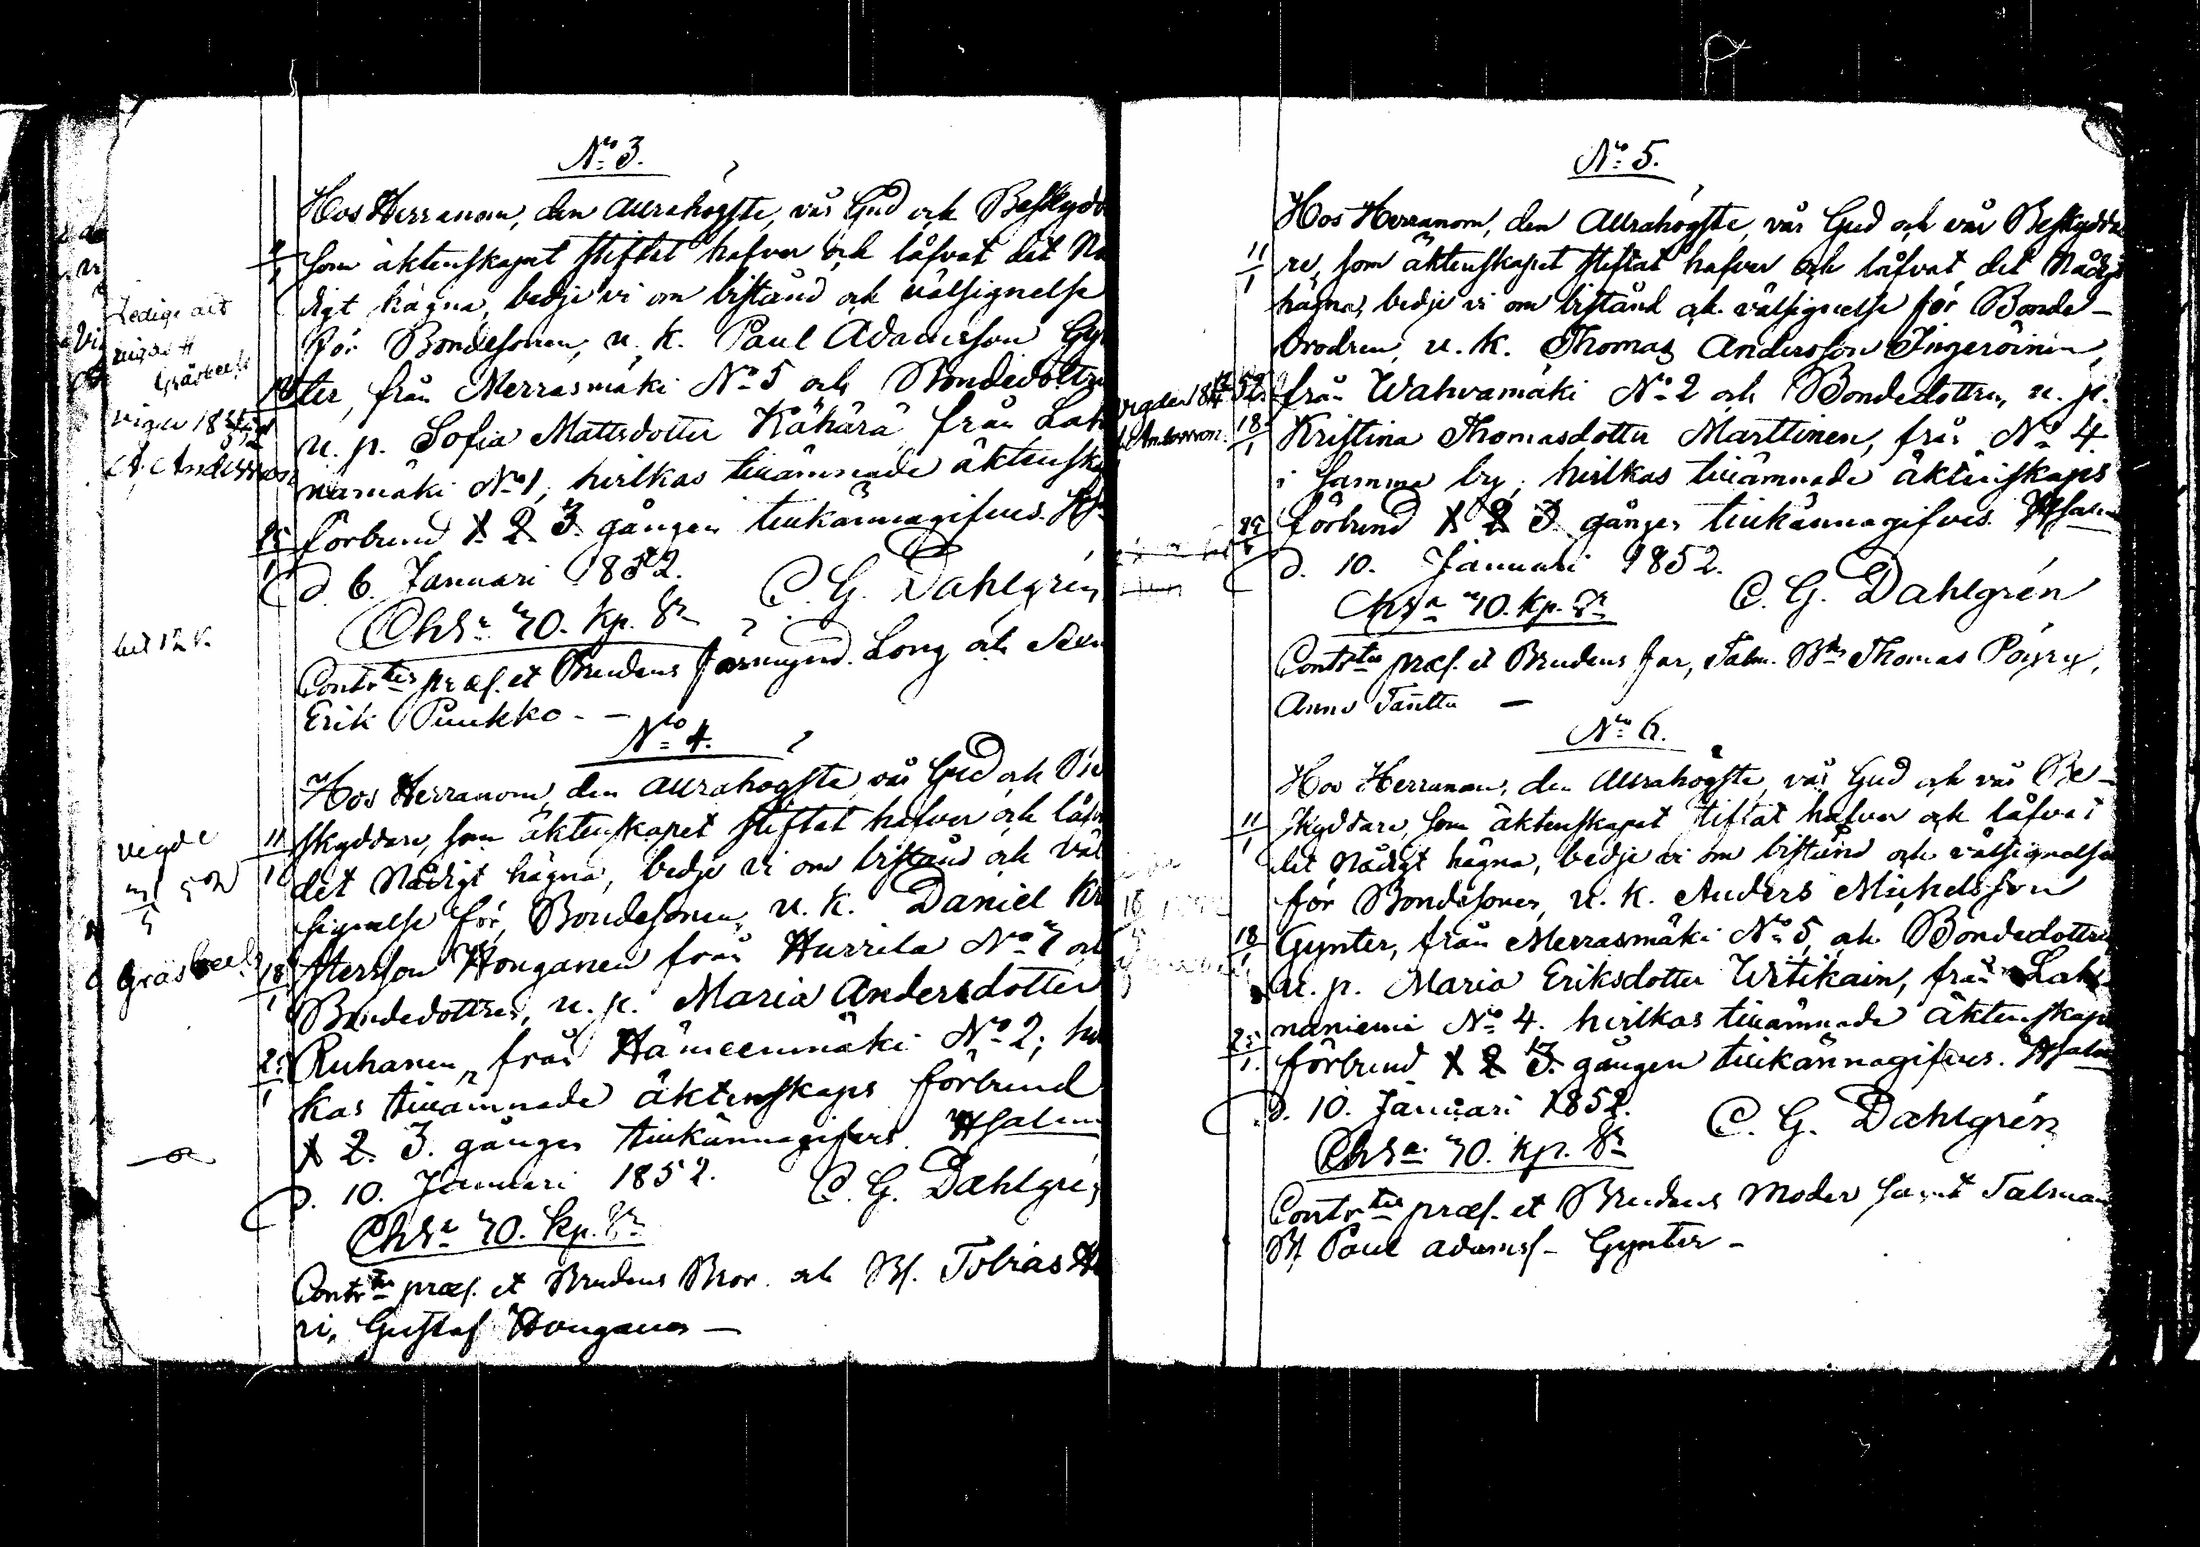 No 3.
Hos Herranom, den Allrahögste, vår Gud och Beskydda
som äktenskapet stiftat hafver och låfvat det Nå
digt hägna, bedje vi om bistånd och välsignelse
för Bondesonen, u. k. Paul Adamsson Gyn
ter, från Merrasmäki No 5 och Bondedottren
u. p. Sofia Mattsdotter Kähärä från Lah
namäki No 1, hvilkas tillämnade äktenska
förbund 1 2 3 gången tillkännagifves.
d. 6. Januari 1852. C. G. Dahlgrén
70. kp. Sr
Contrtes præs. et Brudens Förmynd. Long och
Erik Puukko. -
No 4.
Hos Herranom, den Allrahögste, vår Gud och
skyddare, som äktenskapet stiftat hafver och låfv
det Nådigt hägna, bedje vi om bistånd och väl
signelse för Bondesonen, u. k. Daniel Kri
stersson Honganen från Hurrila No 7 och
Bondedottren, u. p. Maria Andersdotter
Ruhanen, från Hämeenmäki No 2; hvil
kas tillämnade äktenskaps förbund
1 2. 3. gången tillkännagifves.
d. 10. Januari 1852. C. G. Dahlgré
70. kp. Sr
Contrtes præs. et Brudens Bror och Bs. Tobias
ri, Gustaf Honganen —
Ledige att
Gräsbeck
vigde 18
A. Andersson
vigde
Gräsbeck
No 5.
Hos Herranom, den Allrahögste, vår Gud och vår Beskydda
re, som äktenskapet stiftat hafver och låfvat det Nådigt
hägna, bedje vi om bistånd och välsignelse för Bonde-
brodren, u. k. Thomas Andersson Ingeröinen,
från Wahvamäki No 2 och Bondedottren, u. p.
Kristina Thomasdotter Marttinen, från No 4
i samma by, hvilkas tillämnade äktenskaps
förbund 1 2 3 gången tillkännagifves.
d. 10. Januari 1852.
C. G. Dahlgrén
70. kp. Sr
Contrtes præs. et Brudens Far, Talm. Thomas Pöyry,
—
No 6.
Hos Herranom, den Allrahögste, vår Gud och vår Be-
skyddare, som äktenskapet stiftat hafver och låfvat
det Nådigt hägna, bedje vi om bistånd och välsignelse
för Bondesonen, u. k. Anders Michelsson
Gynter, från Merrasmäki No 5, och Bondedottren
u. p. Maria Eriksdotter Witikain, från Lah
naniemi No 4. hvilkas tillämnade äktenskaps
förbund 1 2 3. gången tillkännagifves.
d. 10. Januari 1852.
C. G. Dahlgrén
70. kp. Sr
Contrtes præs. et Brudens Moder samt Talman
Bs Paul Adamss- Gynter -
vigde 18 52.
A. Andersson.